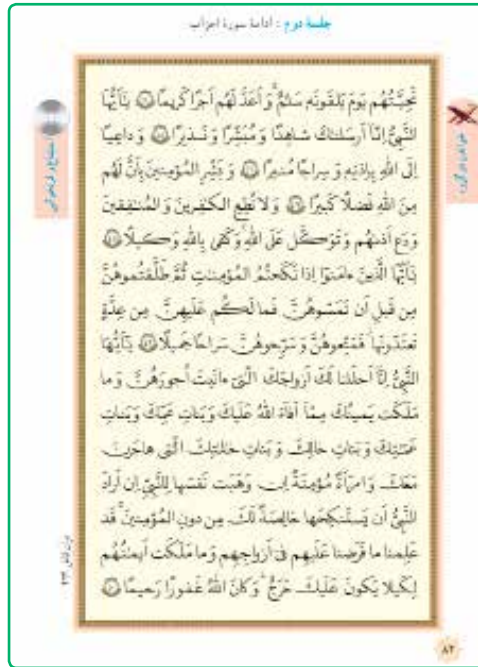 جلسهٔ دوم : ادامهٔ سورهٔ احزاب
تَحِيَّتُهُم يَومَ يَلقَونَهُ سَلٰمٌ وَ اَعَدَّ لَهُم اَجرًا كَريمًا ﴿٤٤﴾ يٰٓاَيُّهَا
النَّبِىُّ اِنّآ اَرسَلنٰكَ شاهِدًا وَ مُبَشِّرًا وَ نَذيرًا ﴿٤٥﴾ وَ داعِيًا
اِلَى اللهِ بِاِذنِهٖ وَ سِراجًا مُنيرًا ﴿٤٦﴾ وَ بَشِّرِ المُؤمِنينَ بِاَنَّ لَهُم
مِنَ اللهِ فَضلًا كَبيرًا ﴿٤٧﴾ وَ لا تُطِعِ الكٰفِرينَ وَ المُنٰفِقينَ
وَ دَع اَذٰىهُم وَ تَوَكَّل عَلَى اللهِ وَ كَفىٰ بِاللهِ وَكيلًا ﴿٤٨﴾
يٰٓاَيُّهَا الَّذينَ ءامَنوٓا اِذا نَكَحتُمُ المُؤمِنٰتِ ثُمَّ طَلَّقتُموهُنَّ
مِن قَبلِ اَن تَمَسّوهُنَّ فَما لَكُم عَلَيهِنَّ مِن عِدَّةٍ
تَعتَدّونَها فَمَتِّعوهُنَّ وَ سَرِّحوهُنَّ سَراحًا جَميلًا ﴿٤٩﴾ يٰٓاَيُّهَا
النَّبِىُّ اِنّآ اَحلَلنا لَكَ اَزواجَكَ الّٰتىٓ ءاتَيتَ اُجورَهُنَّ وَ ما
مَلَكَت يَمينُكَ مِمّآ اَفآءَ اللهُ عَلَيكَ وَ بَناتِ عَمِّكَ وَ بَناتِ
عَمّٰتِكَ وَ بَناتِ خالِكَ وَ بَناتِ خٰلٰتِكَ الّٰتى هاجَرنَ
مَعَكَ وَ امرَاَةً مُؤمِنَةً اِن وَهَبَت نَفسَها لِلنَّبِىِّ اِن اَرادَ
النَّبِىُّ اَن يَستَنكِحَها خالِصَةً لَكَ مِن دونِ المُؤمِنينَ قَد
عَلِمنا ما فَرَضنا عَلَيهِم فىٓ اَزواجِهِم وَ ما مَلَكَت اَيمٰنُهُم
لِكَيلا يَكونَ عَلَيكَ حَرَجٌ وَ كانَ اللهُ غَفورًا رَحيمًا ﴿٥٠﴾
٨٢